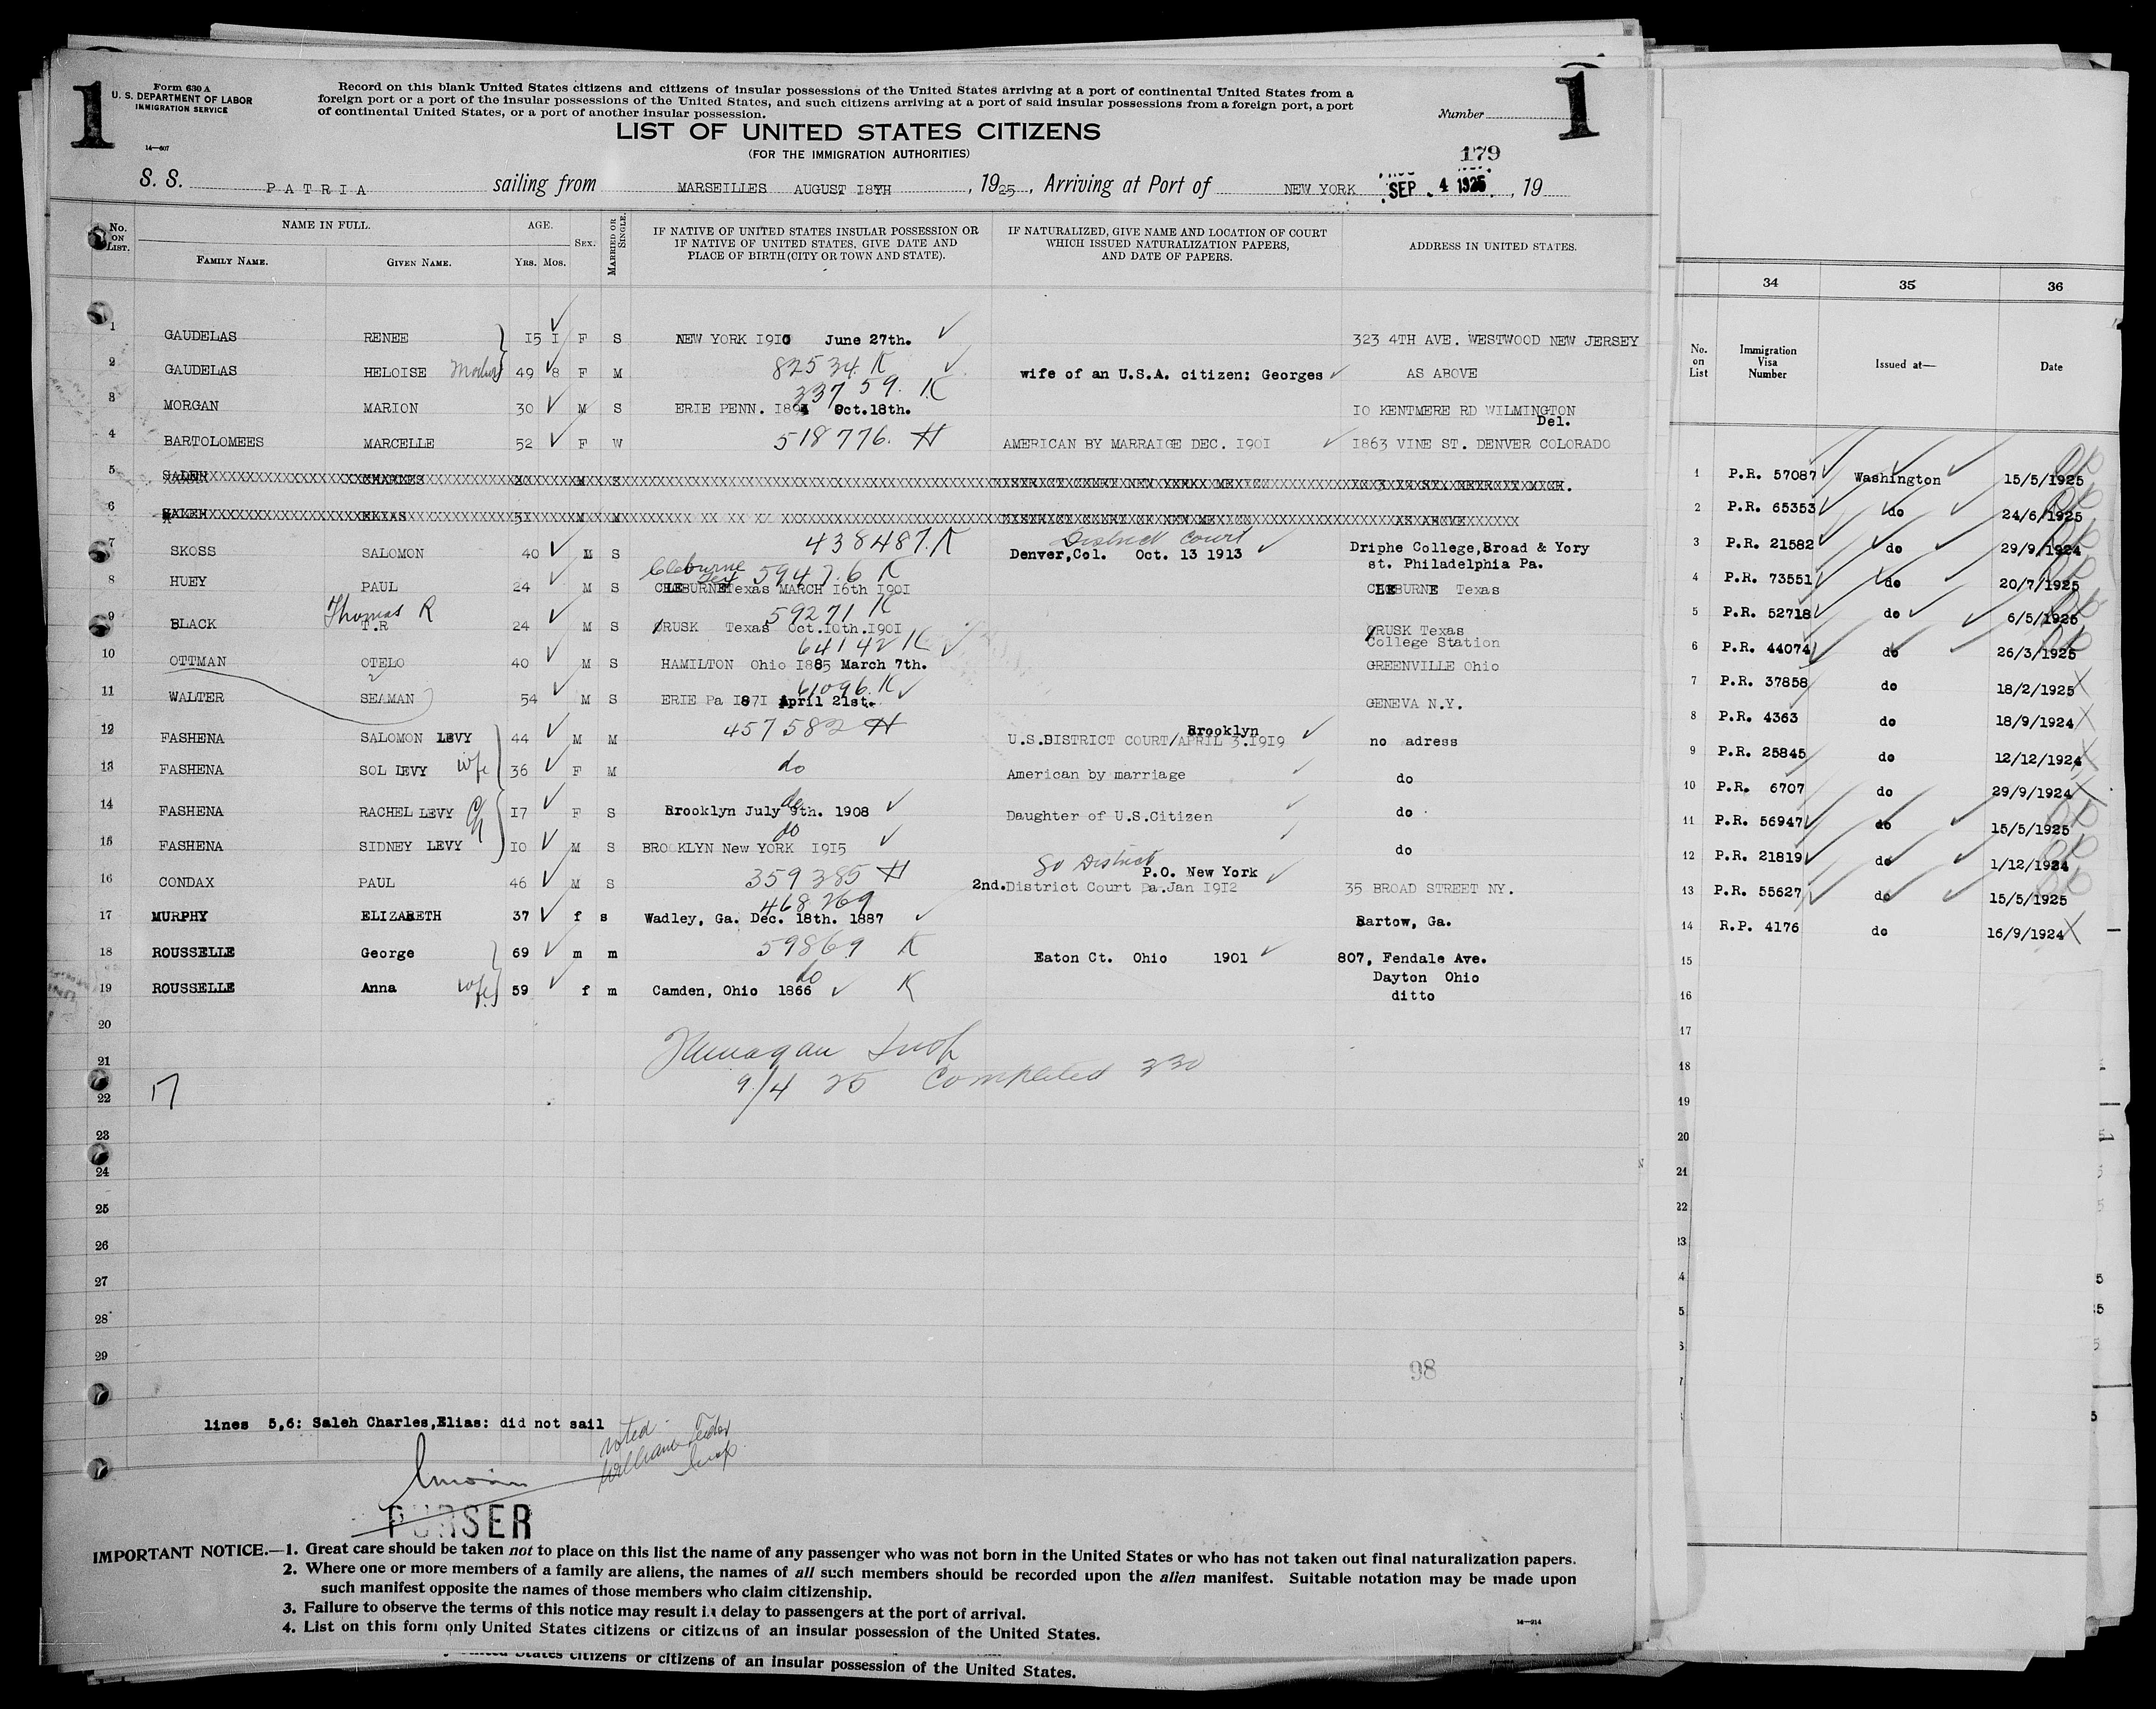 1
Form 630 A
U. S. DEPARTMENT OF LABOR
IMMIGRATION SERVICE
14—607
Record on this blank United States citizens and citizens of insular possessions of the United States arriving at a port of continental United States from a
foreign port or a port of the insular possessions of the United States, and such citizens arriving at a port of said insular possessions from a foreign port, a port
of continental United States, or a port of another insular possession.
Number
1
LIST OF UNITED STATES CITIZENS
(FOR THE IMMIGRATION AUTHORITIES)
179
S. S. PATRIA sailing from MARSEILLES AUGUST I8TH, 1925, Arriving at Port of NEW YORK SEP. 4 1925, 19
No. ON LIST.
NAME IN FULL.
FAMILY NAME. GIVEN NAME.
AGE.
YRS. MOS.
SEX.
MARRIED OR SINGLE.
IF NATIVE OF UNITED STATES INSULAR POSSESSION OR
IF NATIVE OF UNITED STATES, GIVE DATE AND
PLACE OF BIRTH (CITY OR TOWN AND STATE).
IF NATURALIZED, GIVE NAME AND LOCATION OF COURT
WHICH ISSUED NATURALIZATION PAPERS,
AND DATE OF PAPERS.
ADDRESS IN UNITED STATES.
1 GAUDELAS RENEE I5 I F S NEW YORK I910 June 27th. 323 4TH AVE. WESTWOOD NEW JERSEY
82534 K
2 GAUDELAS HELOISE Mother 49 8 F M wife of an U.S.A. citizen: Georges AS ABOVE
33759. K
3 MORGAN MARION 30 M S ERIE PENN. I894 Oct.18th. IO KENTMERE RD WILMINGTON
Del.
4 BARTOLOMEES MARCELLE 52 F W 518776. H AMERICAN BY MARRAIGE DEC. I90I I863 VINE ST. DENVER COLORADO
5 SALEH CHARLES M
6 SALEH ELIAS 5I M M AS ABOVE
438487. K District Court
7 SKOSS SALOMON 40 M S Denver,Col. Oct. 13 1913 Driphe College,Broad & Yory
st. Philadelphia Pa.
Cleburne
Tex 59476 K
8 HUEY PAUL 24 M S CLEBURNE Texas MARCH I6th I90I CLEBURNE Texas
Thomas R 59271 K
9 BLACK T.R 24 M S RUSK Texas Oct.10th.I90I RUSK Texas
College Station
64142 K
10 OTTMAN OTELO 40 M S HAMILTON Ohio I885 March 7th. GREENVILLE Ohio
61096. K
11 WALTER SEAMAN 54 M S ERIE Pa I87I April 21st. GENEVA N.Y.
457582 H Brooklyn
12 FASHENA SALOMON LEVY 44 M M U.S.DISTRICT COURT/APRIL 3.I9I9 no adress
13 FASHENA SOL LEVY wife 36 F M do American by marriage do
do
14 FASHENA RACHEL LEVY Ch I7 F S Brooklyn July 9th. 1908 Daughter of U.S.Citizen do
do
15 FASHENA SIDNEY LEVY IO M S BROOKLYN New YORK I9I5 do
359385 H So District
P.O. New York
16 CONDAX PAUL 46 M S 2nd.District Court Pa.Jan I9I2 35 BROAD STREET NY.
468269
17 MURPHY ELIZABETH 37 f s Wadley, Ga. Dec. 18th. 1887 Bartow, Ga.
18 ROUSSELLE George 69 m m 59869 K Eaton Ct. Ohio 1901 807, Fendale Ave.
Dayton Ohio
do
19 ROUSSELLE Anna wife 59 f m Camden, Ohio 1866 K ditto
20
21
22
17
9/4 25 Completed 330
23
24
25
26
27
28
29
98
lines 5,6: Saleh Charles,Elias: did not sail
noted
William
Insp
PURSER
IMPORTANT NOTICE.—1. Great care should be taken not to place on this list the name of any passenger who was not born in the United States or who has not taken out final naturalization papers.
2. Where one or more members of a family are aliens, the names of all such members should be recorded upon the alien manifest. Suitable notation may be made upon
such manifest opposite the names of those members who claim citizenship.
3. Failure to observe the terms of this notice may result in delay to passengers at the port of arrival.
4. List on this form only United States citizens or citizens of an insular possession of the United States.
14—214
United States citizens or citizens of an insular possession of the United States.
34 35 36
No. on List
Immigration Visa Number
Issued at—
Date
1 P.R. 57087 Washington 15/5/1925
2 P.R. 65353 do 24/6/1925
3 P.R. 21582 do 29/9/1924
4 P.R. 73551 do 20/7/1925
5 P.R. 52718 do 6/5/1925
6 P.R. 44074 do 26/3/1925
7 P.R. 37858 do 18/2/1925
8 P.R. 4363 do 18/9/1924
9 P.R. 25845 do 12/12/1924
10 P.R. 6707 do 29/9/1924
11 P.R. 56947 do 15/5/1925
12 P.R. 21819 do 1/12/1924
13 P.R. 55627 do 15/5/1925
14 R.P. 4176 do 16/9/1924
15
16
17
18
19
20
21
22